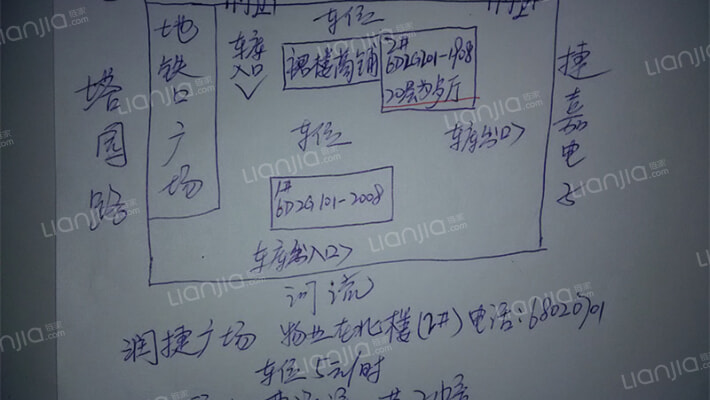 车位
地铁口广场
车库
入口
裙楼商铺
2#
6D2G101-1908
20层为歺厅
塔园路
捷嘉电子
车位
车库出口
1#
6D2G101-2008
车库出入口
河流
润捷广场 物业在北楼(2#) 电话:68020701
车位5元/时